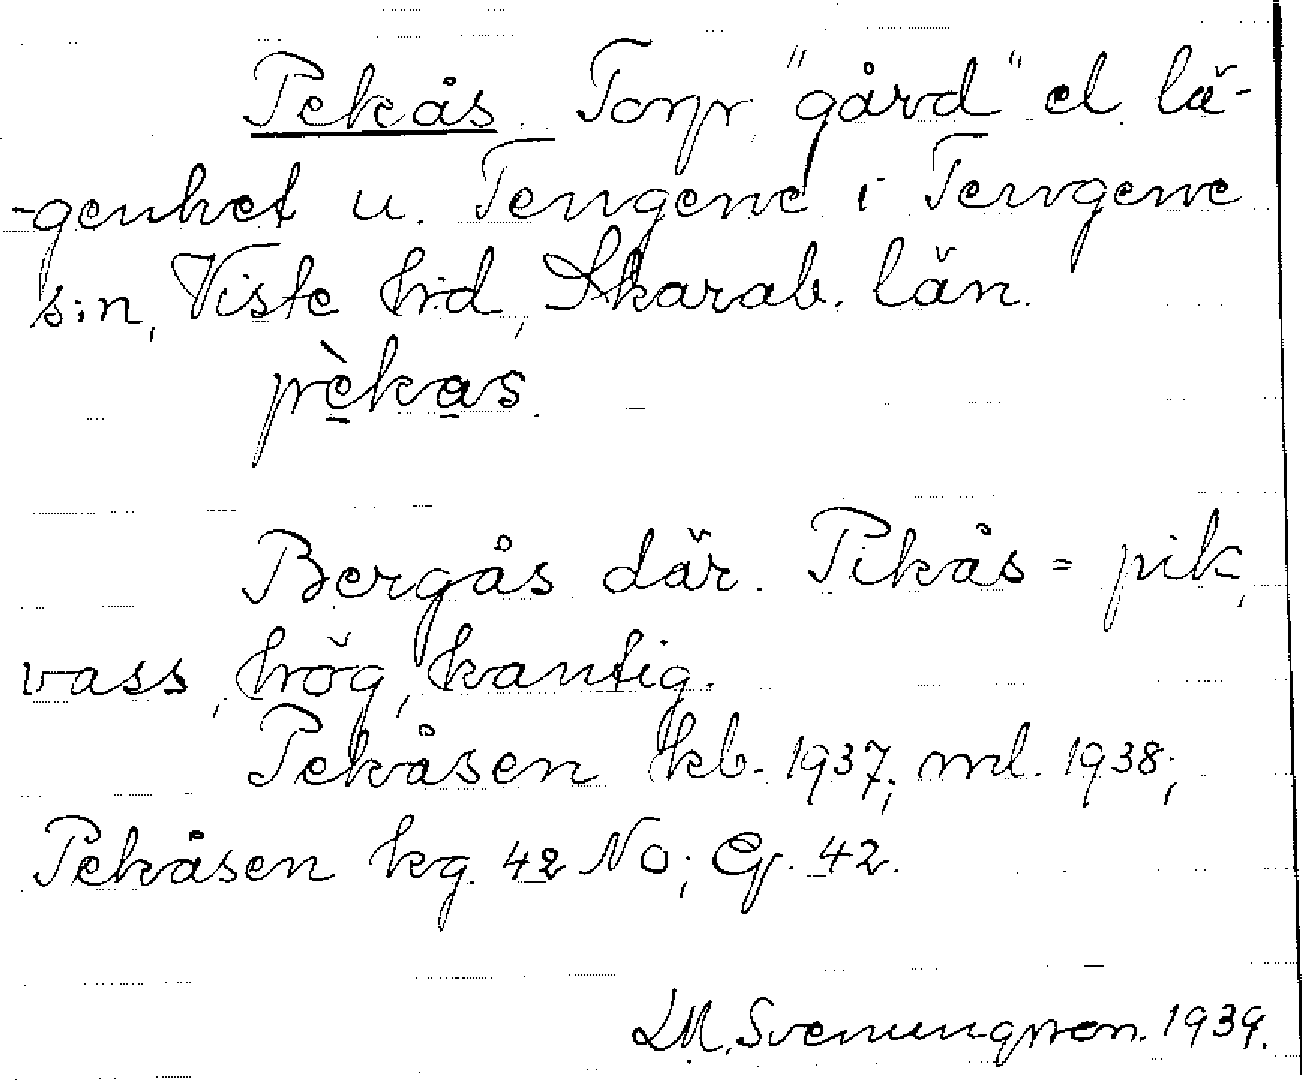 Pekås. Torp, "gård" el. lä-
-genhet u. Tengene i Tengene
s:n, Viste hd, Skarab. län.
pèkas.
Bergås där. Pikås = pik,
vass, hög, kantig.
Pekåsen kb. 1937; ml. 1938;
Pekåsen kg. 42 NO; Gg. 42.
L.M. Svenungsson. 1939.